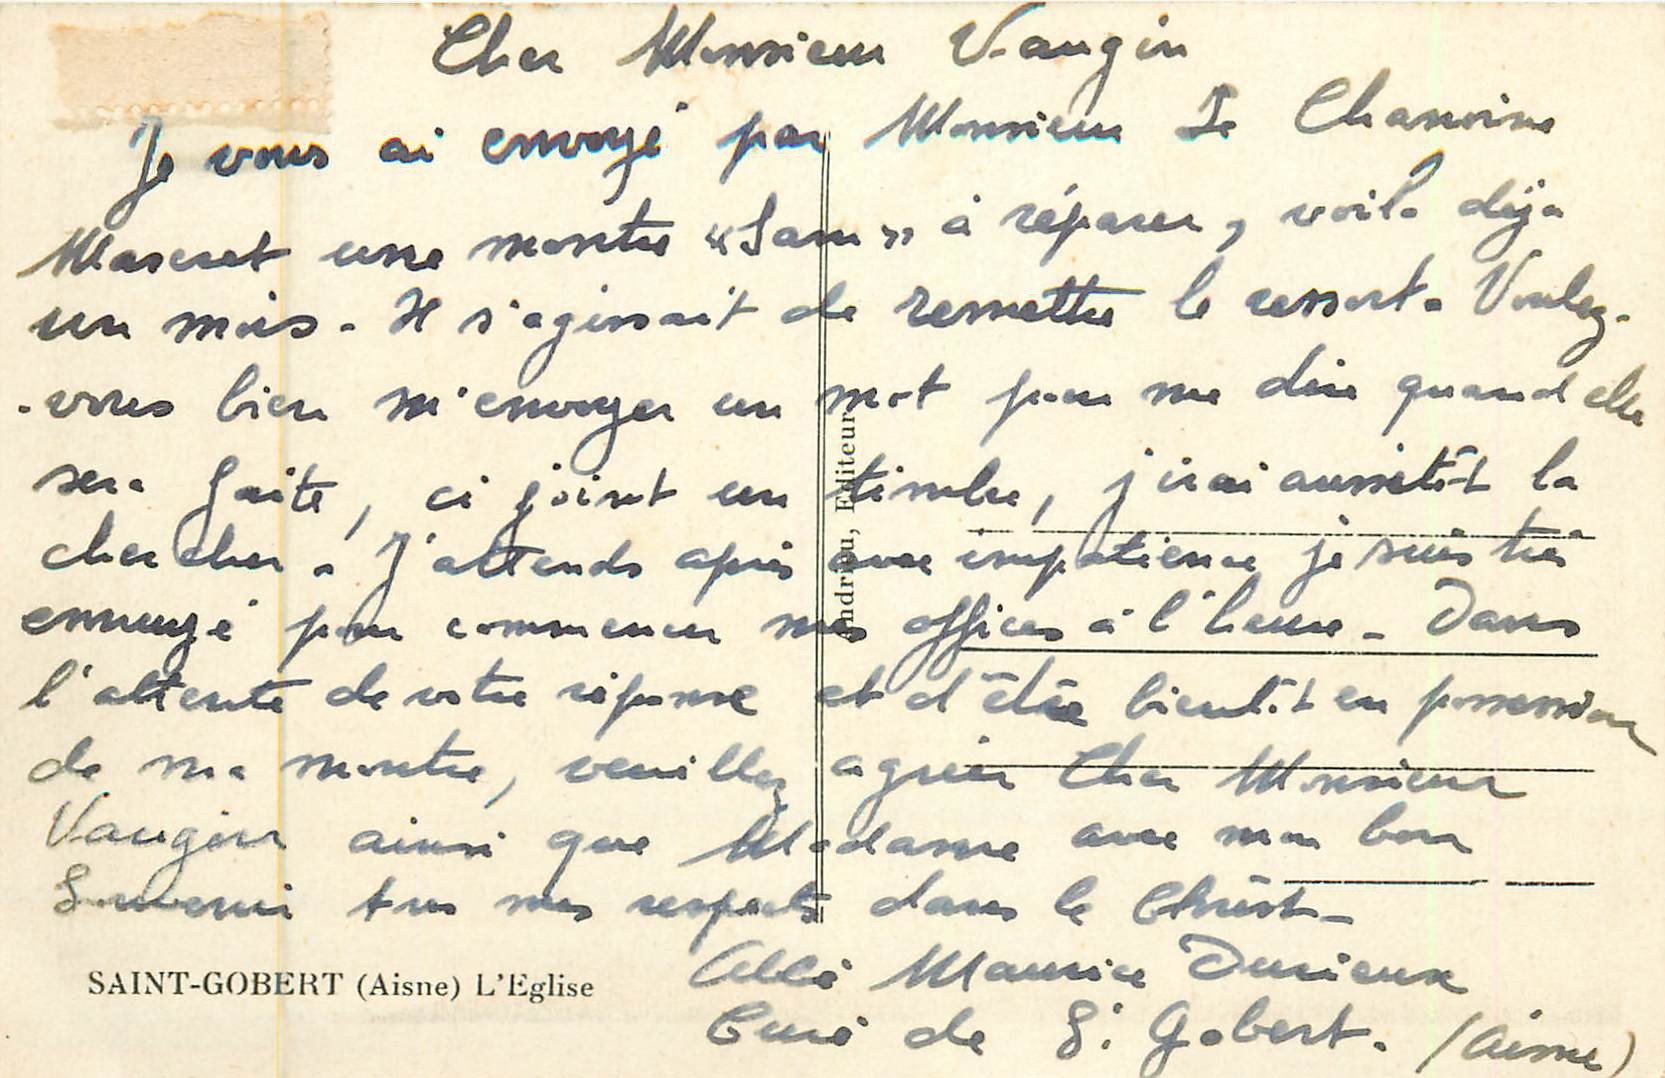 Cher Monsieur Vaugin
Je vous ai envoyé par Monsieur Le Chanoine
Mascret une montre « Sam » à réparer, voilà déjà
un mois. Il s'agissait de remettre le ressort. Voulez-
-vous bien m'envoyer un mot pour me dire quand elle
sera faite, ci joint un timbre, j'irai aussitôt la
chercher. J'attends après avec impatience je suis très
ennuyé pour commencer mes offices à l'heure. Dans
l'attente de votre réponse et d'être bientôt en possession
de ma montre, veuillez agréer Cher Monsieur
Vaugin ainsi que Madame avec mon bon
Souvenir tous mes respects dans le Christ.
Abbé Maurice Durieux
Curé de St Gobert. (Aisne)
SAINT-GOBERT (Aisne) L'Eglise
Andrieu, Editeur